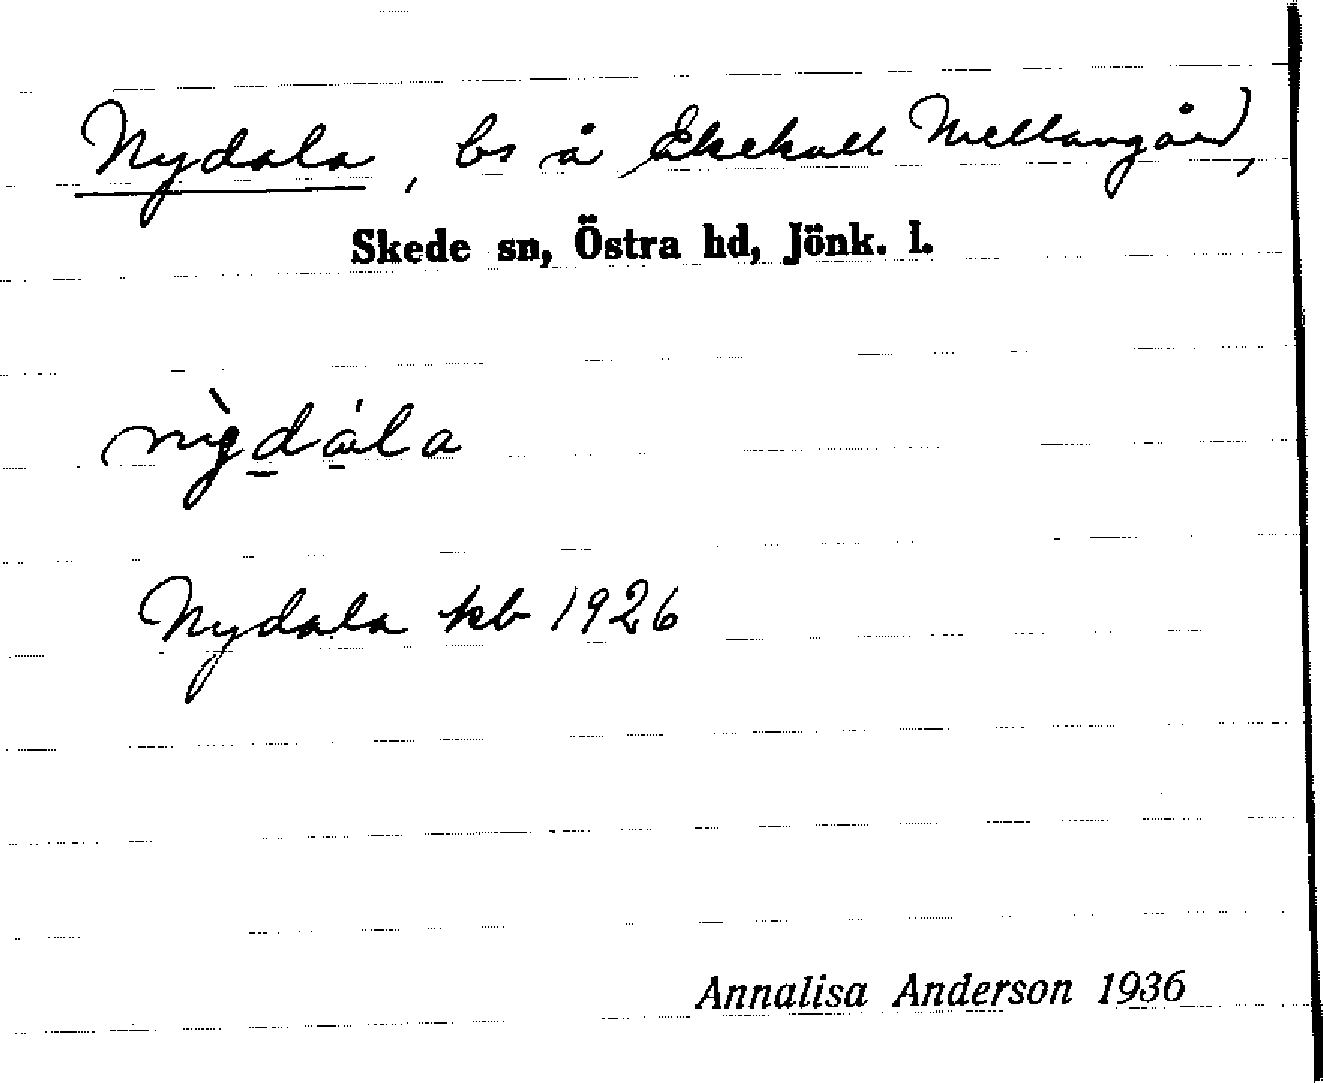 Nydala, bs å Ekekull Mellangård,
Skede sn, Östra hd, Jönk. l.
Nydala kb 1926
Annalisa Anderson 1936